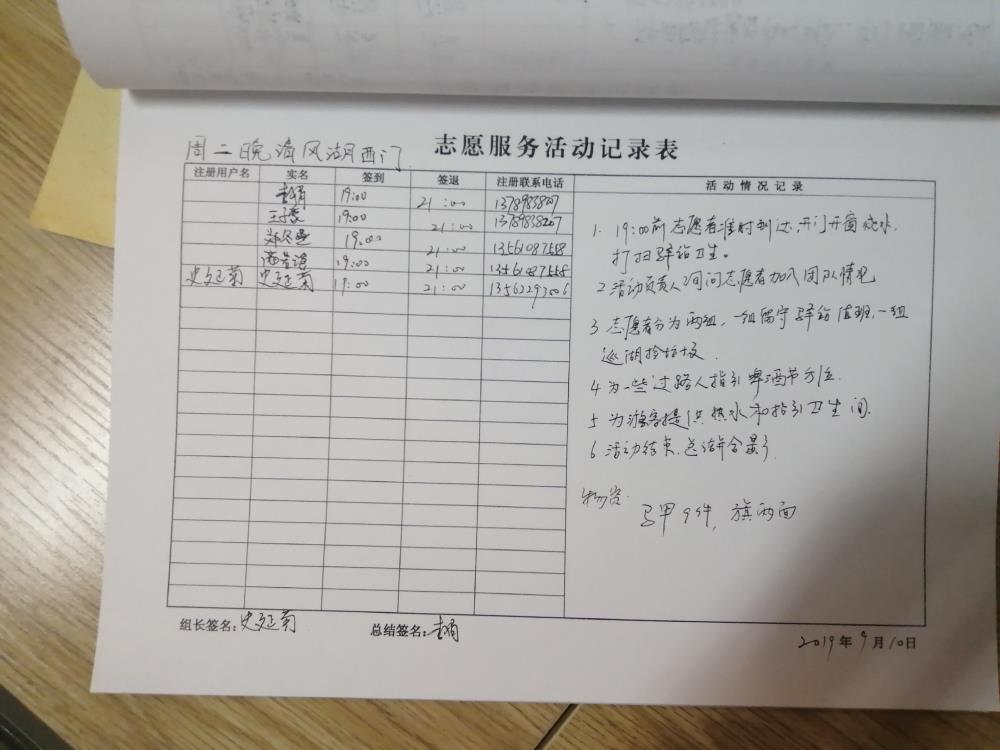 周二晚清风湖西门
志愿服务活动记录表
注册用户名 实名 签到 签退 注册联系电话 活动情况记录
19:00 21:00 13789838207
19:00 21:00 13789838207
19:00 21:00 13561087558
19:00 21:00 13561087558
史延菊 史延菊 19:00 21:00 13562293006
1. 19:00前志愿者准时到达,开门开窗烧水,
打扫驿站卫生。
2 活动负责人询问志愿者加入团队情况
3 志愿者分为两组,一组留守驿站值班,一组
巡湖捡垃圾.
4 为一些过路人指引啤酒节方位.
5 为游客提供热水和指引卫生间.
6 活动结束,总结并合影
物资:
马甲9件,旗两面
组长签名:史延菊 总结签名:
2019年9月10日